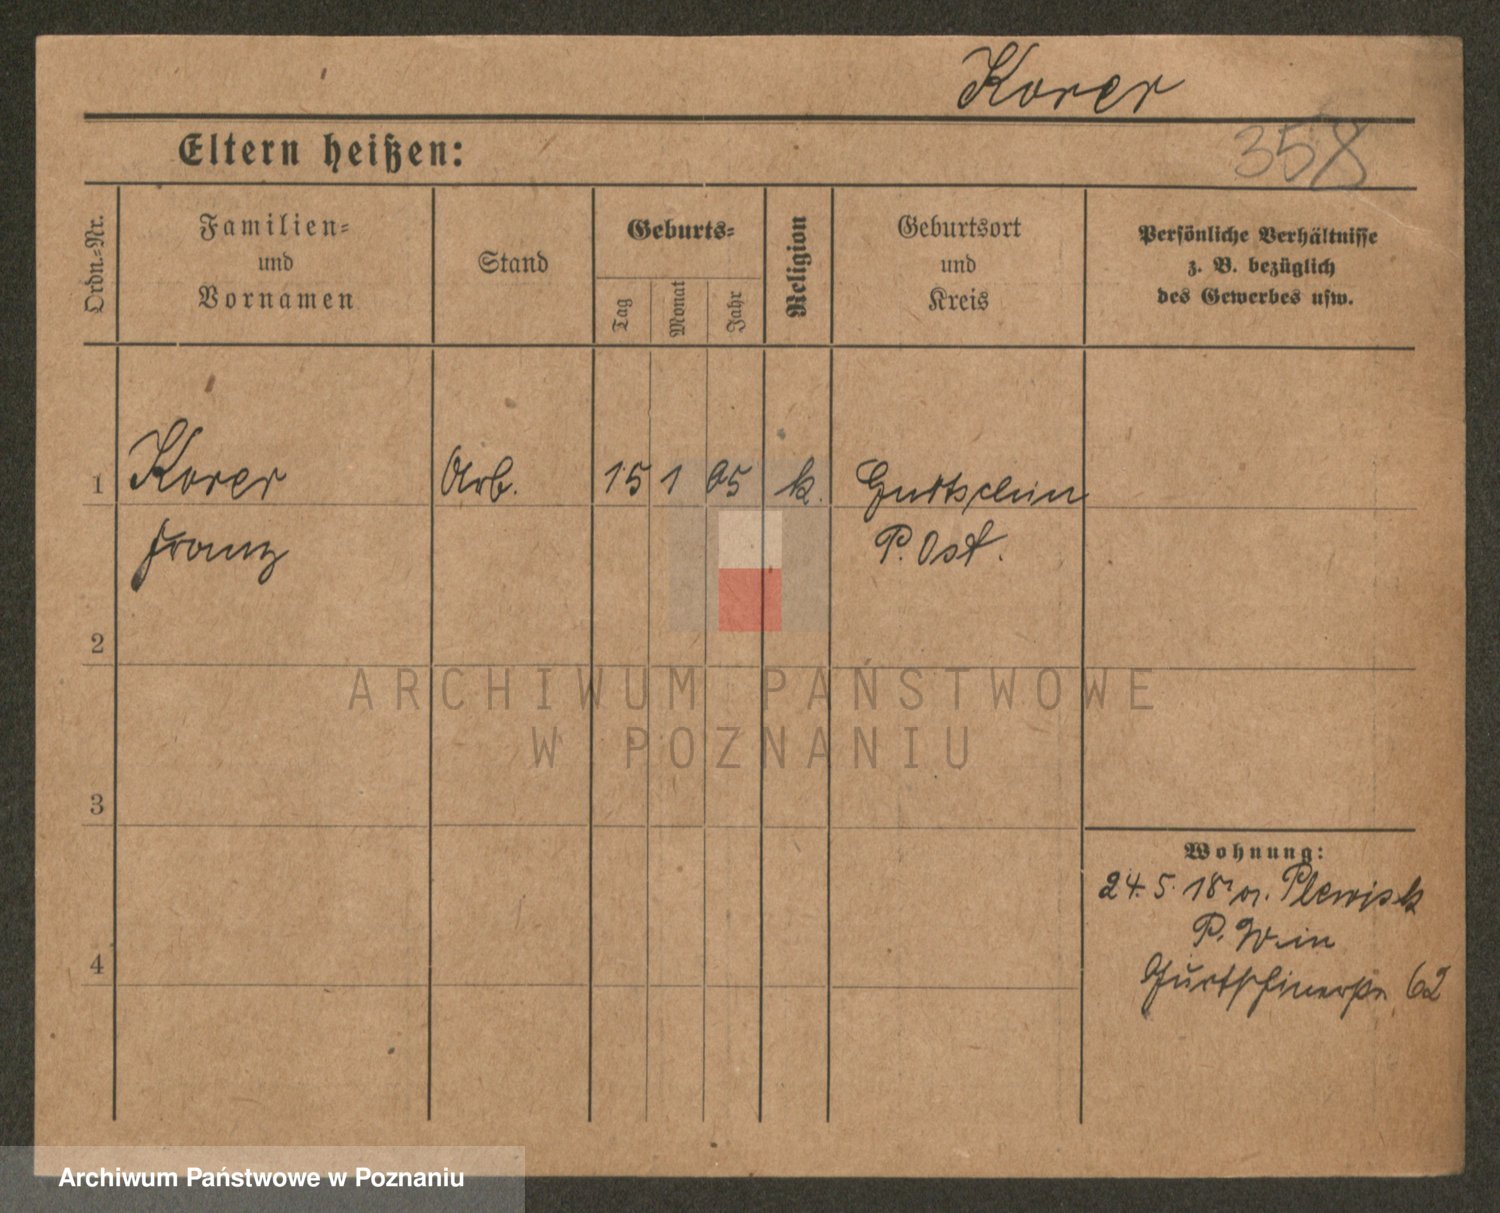 Korcz
358
Eltern heißen:
Ordn.-Nr.
Familien=
und
Vornamen
Stand
Geburts=
Tag
Monat
Jahr
Religion
Geburtsort
und
Kreis
Persönliche Verhältnisse
z. B. bezüglich
des Gewerbes usw.
1 Korcz Arb. 15 1 05 k.
Franz P. Ost.
2
3
4
Wohnung:
24. 5. 18 Plewisk
P. W. in
62
ARCHIWUM PAŃSTWOWE
W POZNANIU
Archiwum Państwowe w Poznaniu